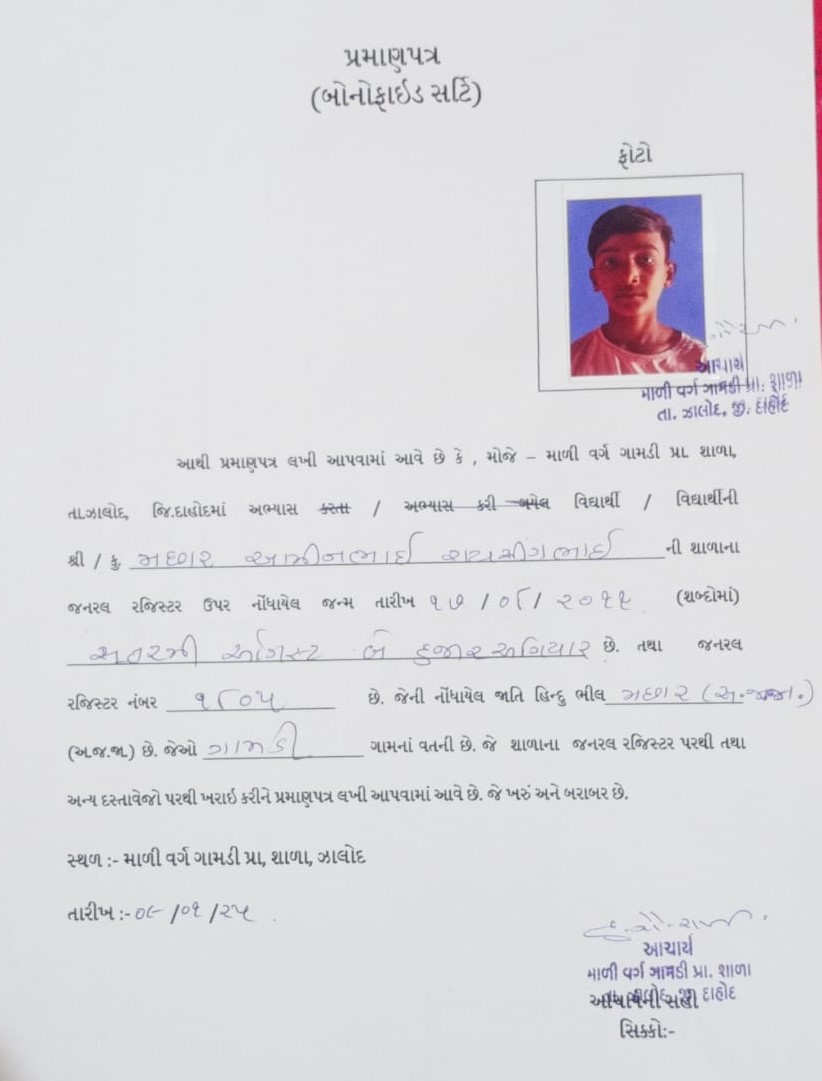 પ્રમાણપત્ર
(બોનોફાઇડ સર્ટિ)
ફોટો
આચાર્ય
માળી વર્ગ ગામડી પ્રા. શાળા
તા. ઝાલોદ, જી. દાહોદ
આથી પ્રમાણપત્ર લખી આપવામાં આવે છે કે , મોજે – માળી વર્ગ ગામડી પ્રા. શાળા,
તા.ઝાલોદ, જિ.દાહોદમાં અભ્યાસ કરતા / અભ્યાસ કરી ગયેલ વિદ્યાર્થી / વિદ્યાર્થીની
શ્રી / કુ. મછાર અમીનભાઈ રાયસીંગભાઈ ની શાળાના
જનરલ રજિસ્ટર ઉપર નોંધાયેલ જન્મ તારીખ ૧૭ / ૦૮ / ૨૦૧૧ (શબ્દોમાં)
સતરમી ઓગસ્ટ બે હજાર અગિયાર છે. તથા જનરલ
રજિસ્ટર નંબર ૧૮૦૫ છે. જેની નોંધાયેલ જાતિ હિન્દુ ભીલ મછાર (અ.જ.જા.)
(અ.જ.જા.) છે. જેઓ ગામડી ગામનાં વતની છે. જે શાળાના જનરલ રજિસ્ટર પરથી તથા
અન્ય દસ્તાવેજો પરથી ખરાઇ કરીને પ્રમાણપત્ર લખી આપવામાં આવે છે. જે ખરું અને બરાબર છે.
સ્થળ :- માળી વર્ગ ગામડી પ્રા, શાળા, ઝાલોદ
તારીખ :- ૦૯ /૦૧ /૨૫ .
આચાર્ય
માળી વર્ગ ગામડી પ્રા. શાળા
તા. ઝાલોદ, જી. દાહોદ
આચાર્યની સહી
સિક્કો:-